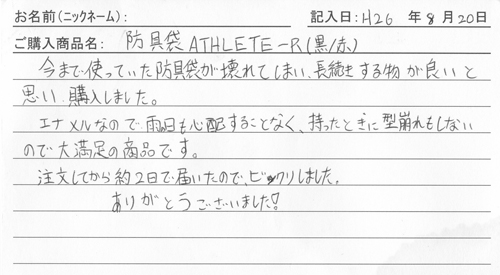 お名前(ニックネーム): 記入日:H26 年 8 月 20日
ご購入商品名: 防具袋 ATHLETE-R(黒/赤)
今まで使っていた防具袋が壊れてしまい、長続きする物が良いと
思い、購入しました。
エナメルなので雨の日も心配することなく、持ったときに型崩れもしない
ので大満足の商品です。
注文してから約2日で届いたので、ビックリしました。
ありがとうございました!